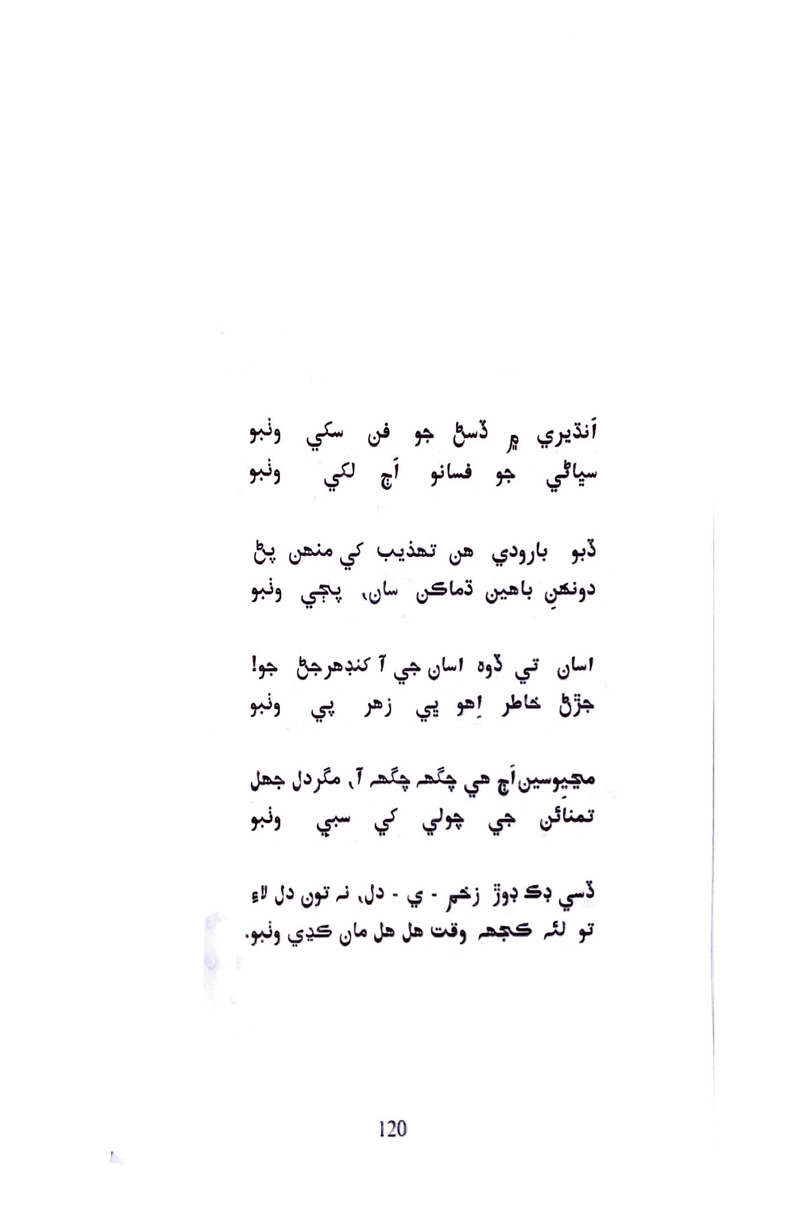 اَنڌيري ۾ ڏسڻ جو فن سکي ونبو
سڀاڻي جو فسانو اَڄ لکي ونبو
ڏٻو بارودي هن تهذيب کي منهن پڻ
دونهنِ باهين ڌماڪن سان، پڃي ونبو
اسان تي ڏوهہ اسان جي آ کنڊهرجڻ جو!
جڙڻ خاطر اِهو ڀي زهر پي ونبو
مڃيوسين اَڄ هي چگهہ چگهہ آ، مگر دل جهل
تمنائن جي چولي کي سبي ونبو
ڏسي ڊڪ ڊوڙ زخم - ي - دل، نہ تون دل لاءِ
تو لئہ ڪجهہ وقت هل هل مان ڪڍي ونبو.
120